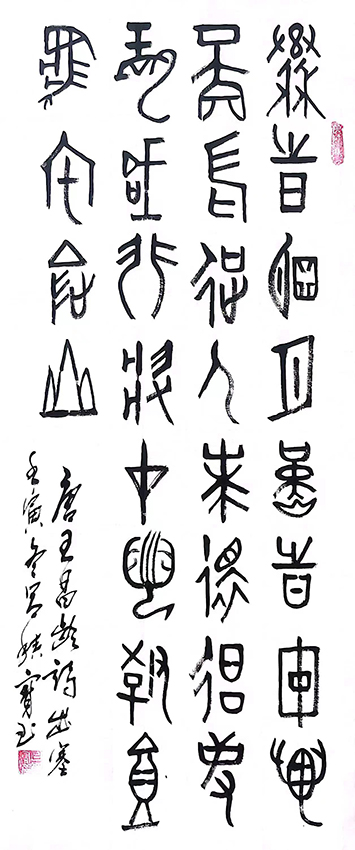 秦時明月漢時關萬
里長征人未還但使
龍城飛將在不教胡
馬度陰山
唐王昌齡詩出塞
壬寅冬